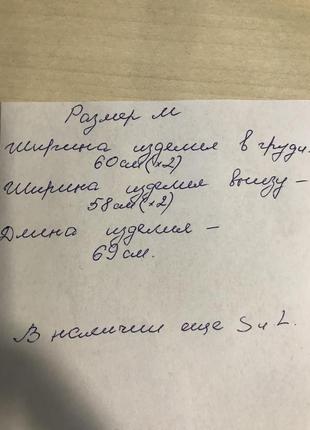 Размер М
Ширина изделия в груди-
60см(х2)
Ширина изделия внизу -
58см(х2)
Длина изделия -
69см.
В наличии еще S и L.